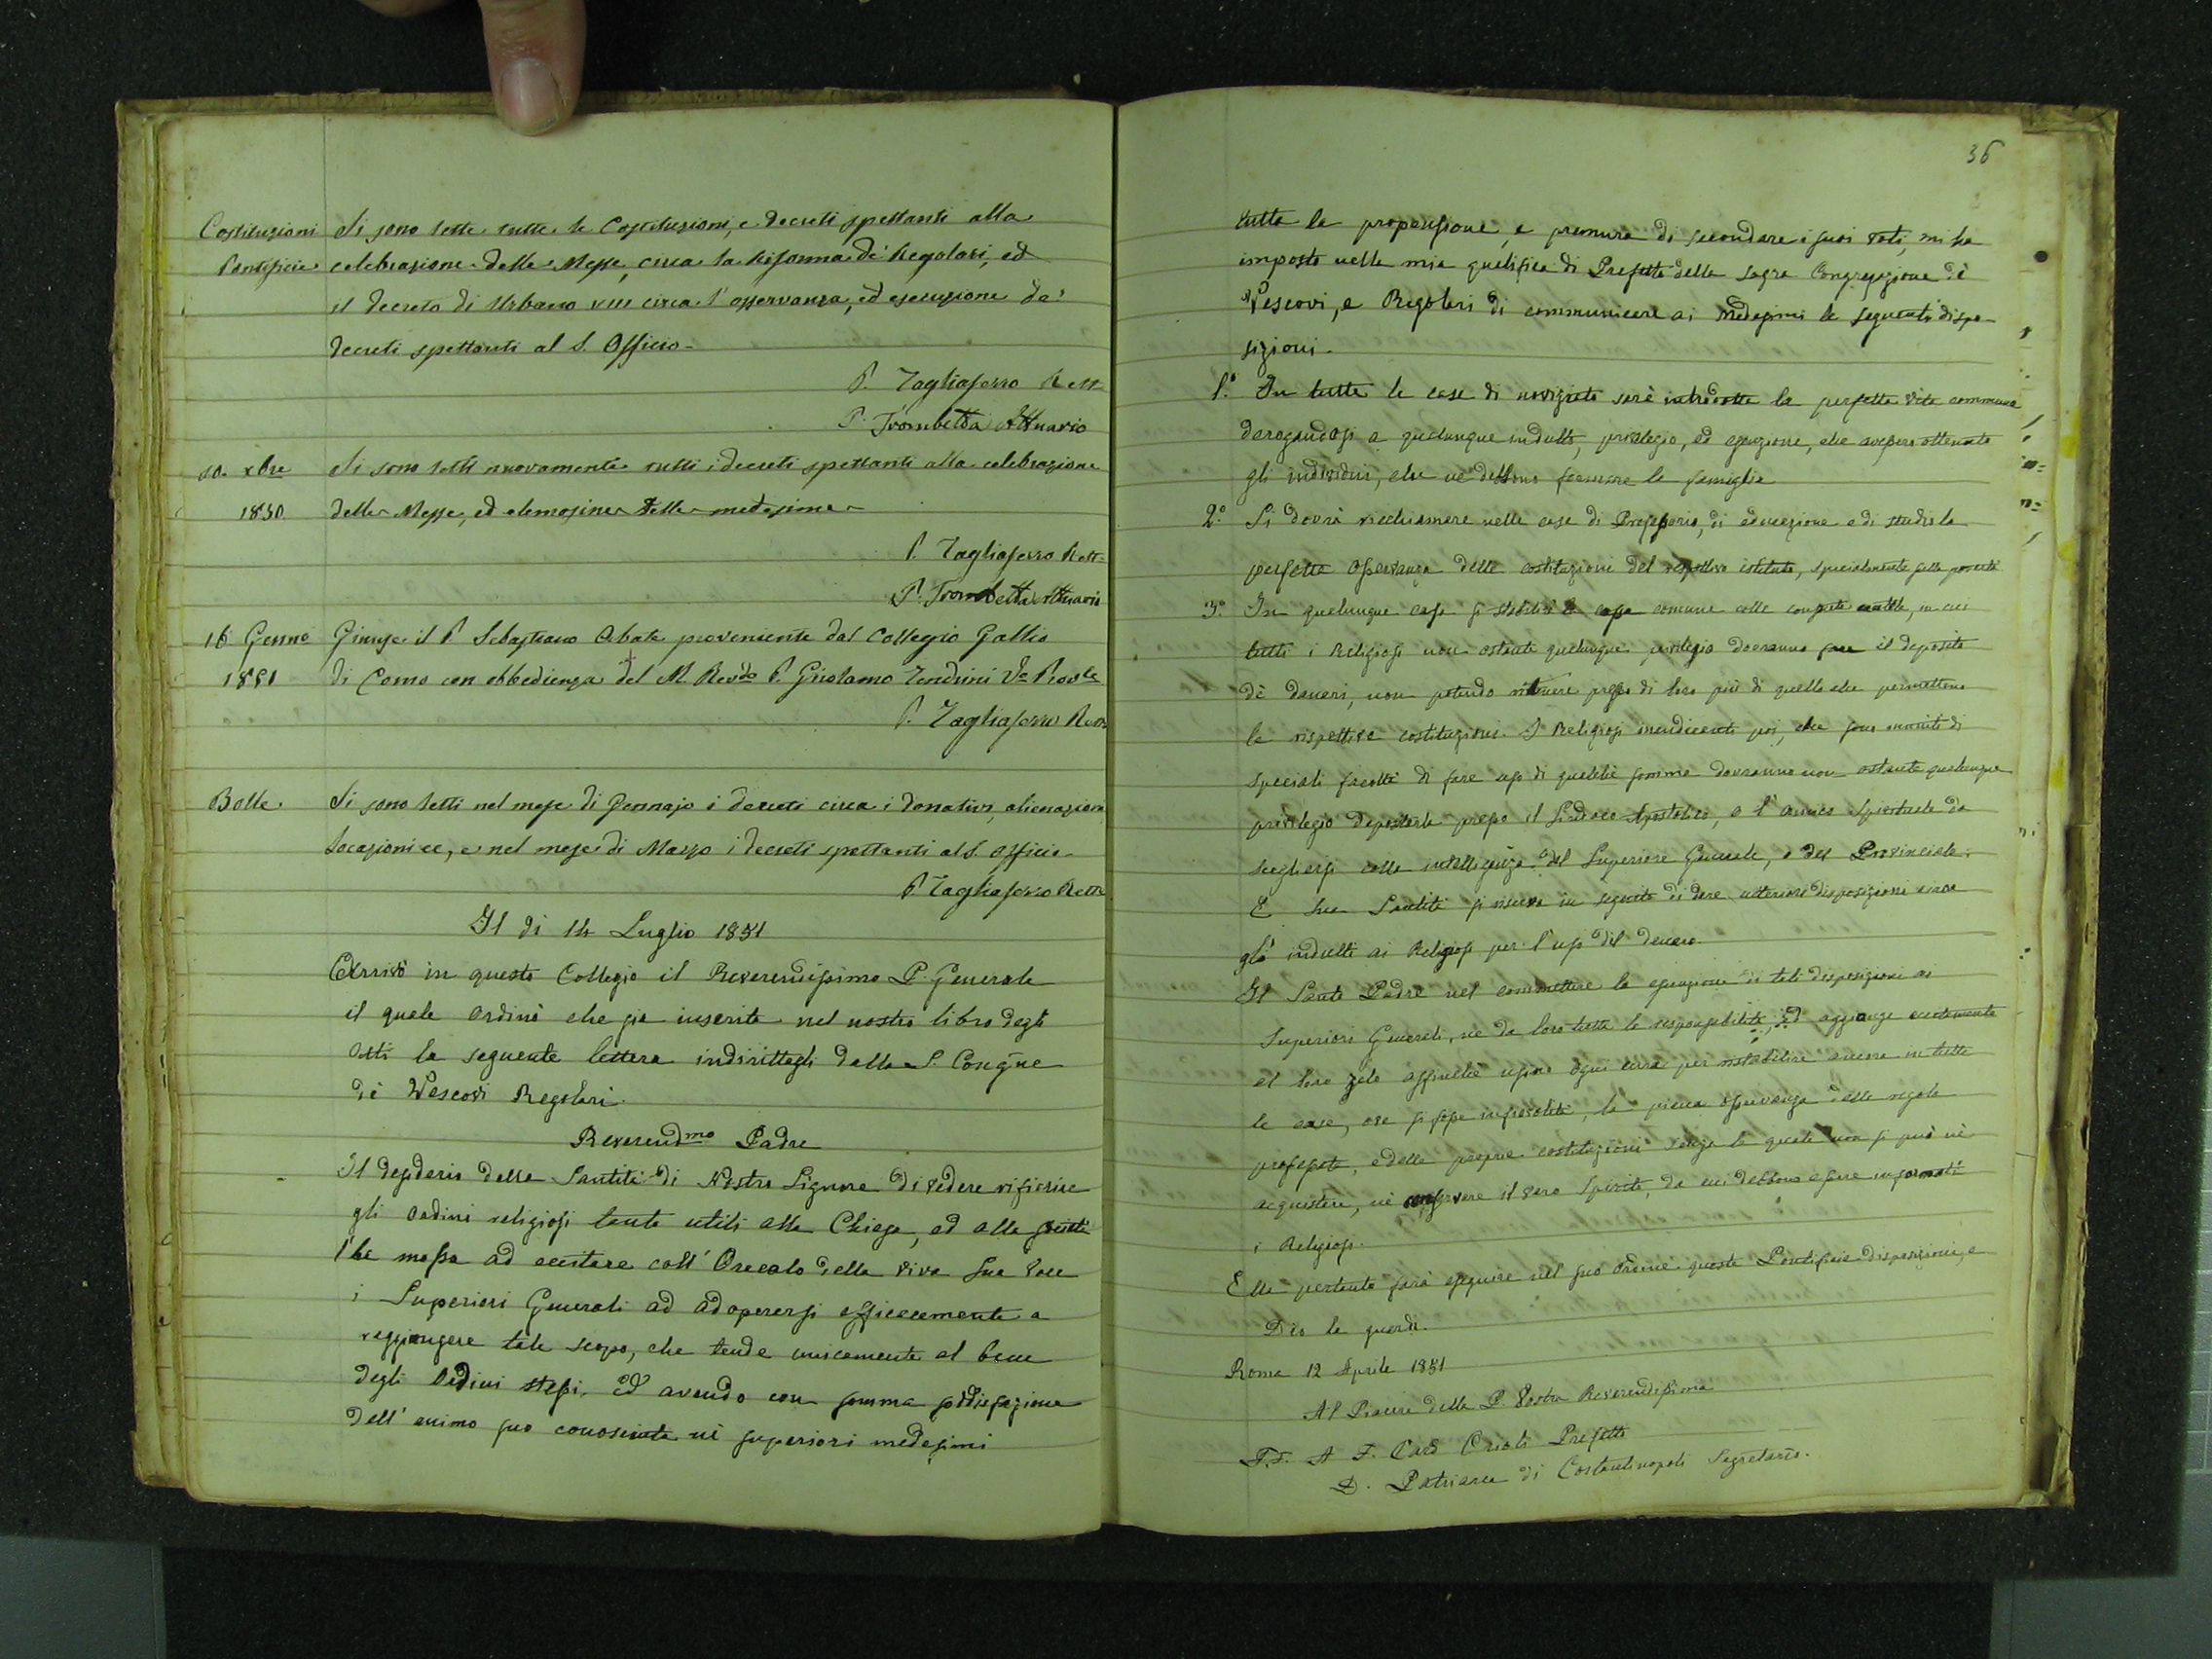 Costituzioni Si sono lette tutte le Costituzioni, e decreti spettanti alla
Pontificie celebrazione delle Messe, circa la riforma de' Regolari, ed
il decreto di Urbano VIII circa l'osservanza, ed esecuzione de'
decreti spettanti al S. Officio-
P. Tagliaferro Rett
P. Trombetta Attuario
10. xbre Si sono letti nuovamente tutti i decreti spettanti alla celebrazione
1850 delle Messe, ed elemosine delle medesime-
P. Tagliaferro Rett-
P. Trombetta Attuario
16 Genno Giunse il P. Sebastiano Abate proveniente dal Collegio Gallio
1851 di Como con obbedienza del M. Revdo P. Girolamo Zendrini Vo Provle
P. Tagliaferro Rett
Bolle. Si sono letti nel mese di Gennajo i decreti circa i donativi, alienazioni
locazioni ec, e nel mese di Marzo i decreti spettanti al S. Officio-
P. Tagliaferro Rett
Il dì 14 Luglio 1851
Arrivò in questo Collegio il Reverendissimo P. Generale
il quale ordinò che sia inserita nel nostro libro degli
Atti la seguente lettera indirittagli dalla S. Congne
de' Vescovi Regolari.
Reverendmo Padre
Il desiderio della Santità di Nostro Signore di vedere rifiorire
gli ordini religiosi tanto utili alla Chiesa, ed alla società
l'ha mosso ad eccitare coll'Oracolo della viva sua Voce
i Superiori Generali ad adoperarsi efficacemente a
raggiungere tale scopo, che tende unicamente al bene
degli Ordini stessi. Ed avendo con somma soddisfazione
dell'animo suo conosciuto nè superiori medesimi
36
tutta la propensione, e premura di secondare i suoi voti, mi ha
imposto nella mia qualifica di Prefetto della Sagra Congregazione dè
Vescovi, e Regolari di communicare ai medesimi le seguenti dispo-
sizioni-
1.° In tutte le case di noviziato sarà introdotta la perfetta vita commune
derogandosi a qualunque indulto, privilegio, ed esenzione, che avessero ottenuto
gli individui, che ne debbono formare la famiglia
2.° Si dovrà richiamare nelle case di Professorio, di educazione e di studi la
perfetta osservanza delle costituzioni del respettivo istituto, specialmente sulla povertà
3.° In qualunque casa si stabilirà la cassa comune colle consuete cautele, in cui
tutti i Religiosi non ostante qualunque privilegio dovranno fare il deposito
dè danari, non potendo ritenere presso di loro più di quello che permettono
le rispettive costituzioni. I Religiosi mendicanti poi, che sono muniti di
speciali facoltà di fare uso di qualche somma dovranno non ostante qualunque
privilegio depositarla presso il Sindaco Apostolico, o l'amico spirituale da
scegliersi colla intelligenza del Superiore Generale, o del Provinciale.
E Sua Santità si riserva in seguito di dare ulteriori disposizioni circa
gl'indulti ai Religiosi per l'uso del denaro.
Il Santo Padre nel commettere la esecuzione di tali disposizioni ai
Superiori Generali, ne da loro tutta la responsabilità, ed aggiunge
al loro zelo affinchè usino ogni cura per ristabilire ancora in tutte
le case, ove si fosse infievolita, la piena osservanza delle regole
professate, e delle proprie costituzioni senza le quali non si può nè
acquistare, nè conservare il vero Spirito, da cui debbono essere informati
i Religiosi.
Ella pertanto farà eseguire nel suo Ordine queste Pontificie disposizioni, e
Dio la guardi.
Roma 12 Aprile 1851
Al Piacere della P. Vostra Reverendissima
F.F. A F. Card Orioli Prefetto
D. Patriarca di Costantinopoli Segretario.